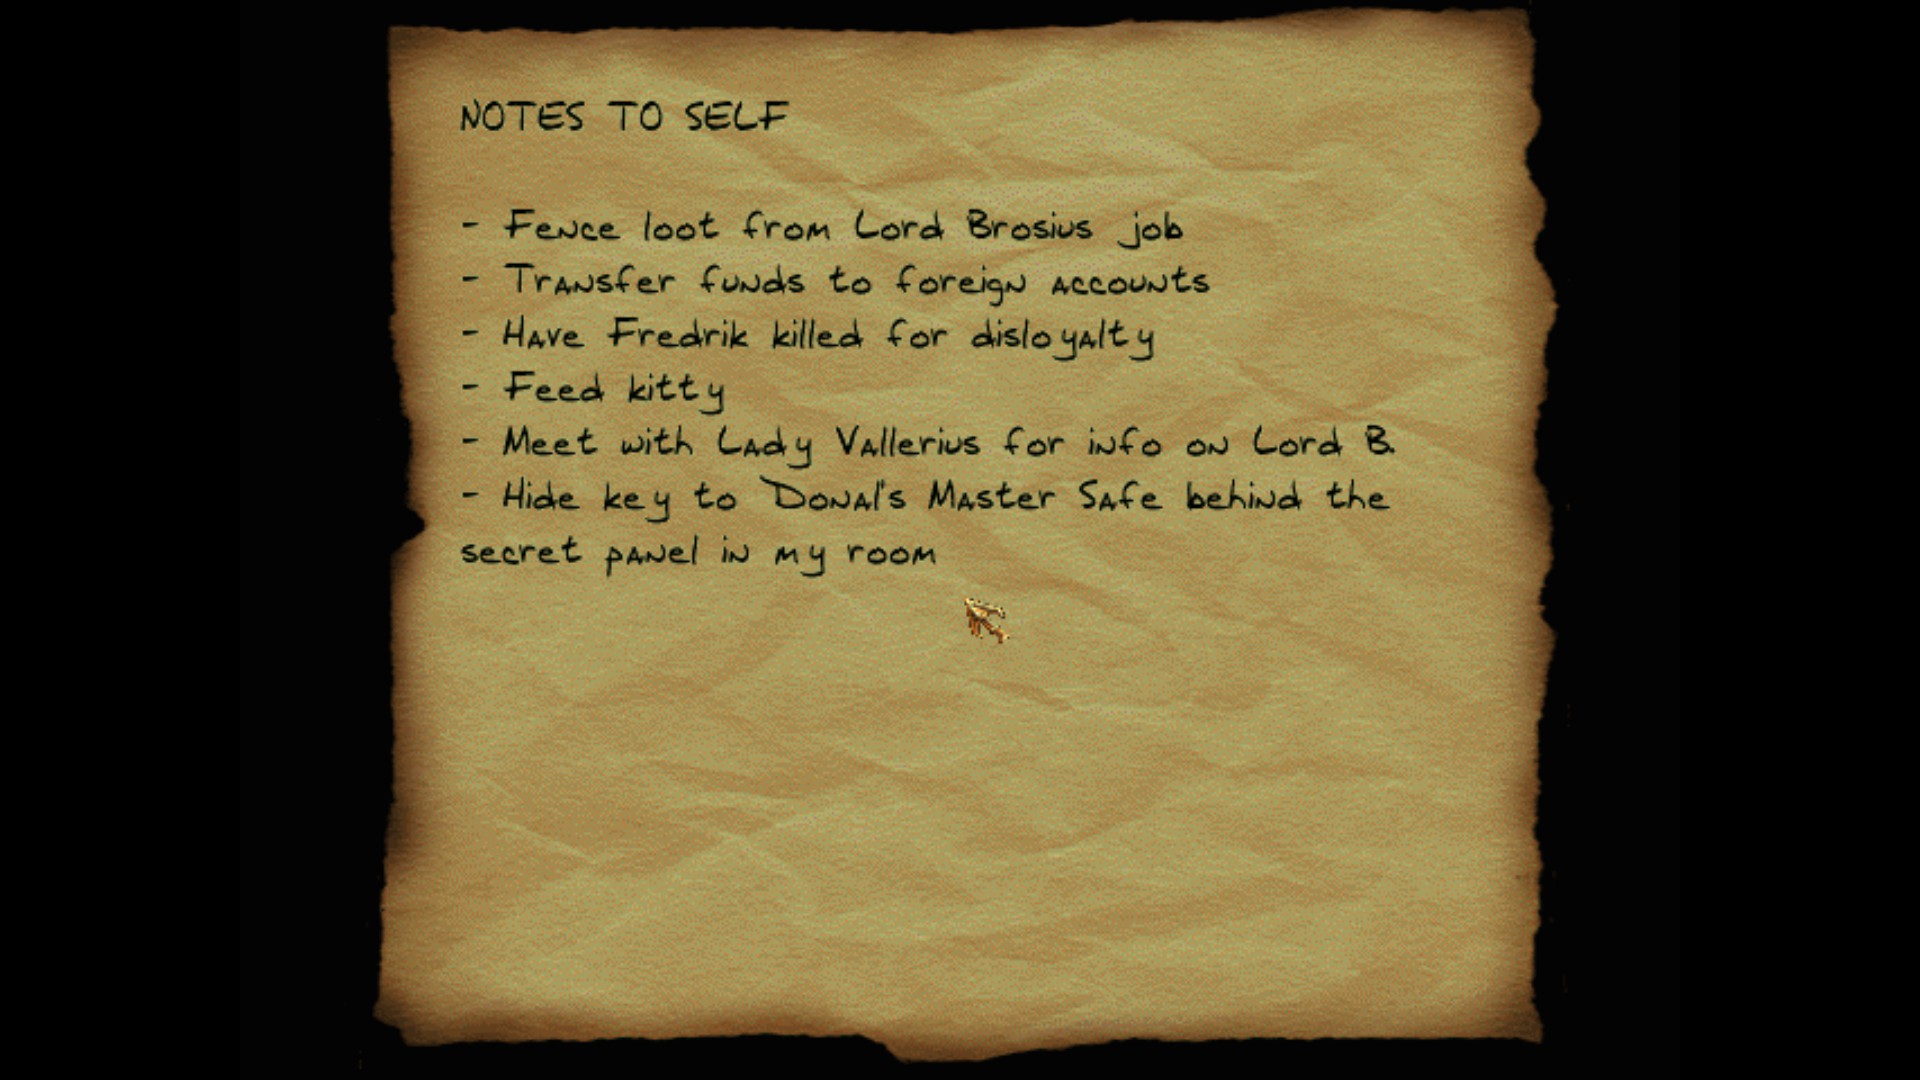 NOTES TO SELF
- Fence loot from Lord Brosius job
- Transfer funds to foreign accounts
- Have Fredrik killed for disloyalty
- Feed kitty
- Meet with Lady Vallerius for info on Lord B.
- Hide key to Donal's Master Safe behind the
secret panel in my room